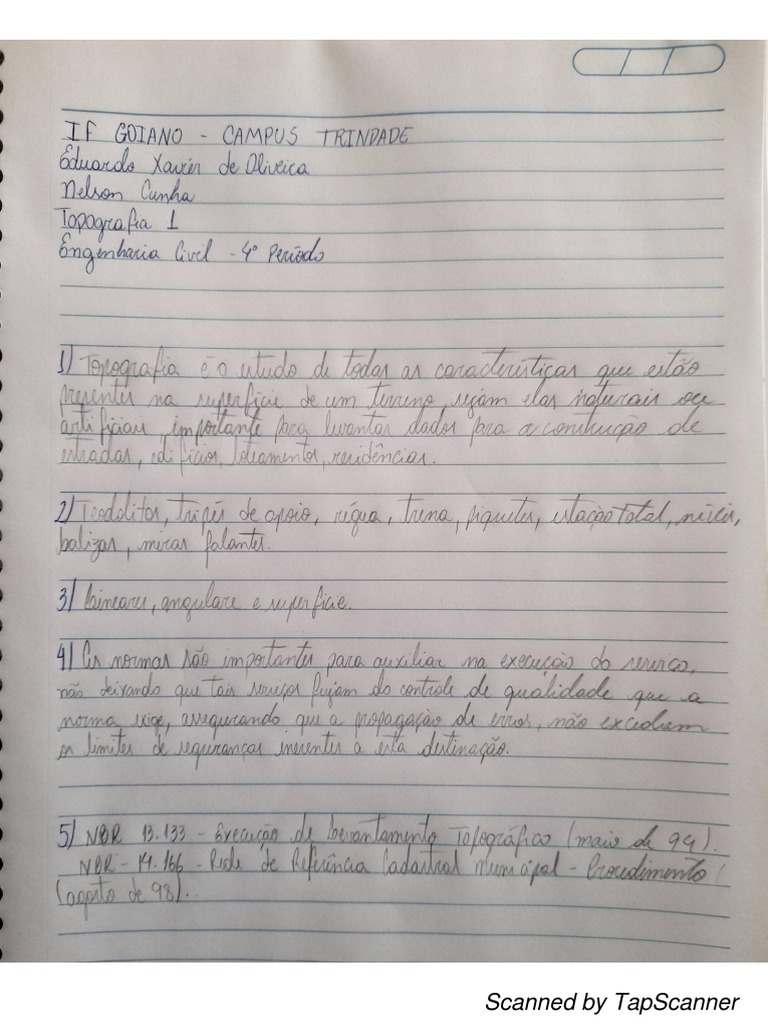 IF GOIANO - CAMPUS TRINDADE
Eduardo Xavier de Oliveira
Nelson Cunha
Topografia 1
Engenharia Civil - 4º Período
1) Topografia é o estudo de todas as características que estão
presentes na superfície de um terreno, sejam elas naturais ou
artificiais importante para levantar dados para a construção de
estradas, edifícios, loteamentos, residências.
2) Teodolitos, tripés de apoio, régua, trena, piquetes, estação total, níveis,
balizas, miras falantes.
3) Lineares, angulare e superfície.
4) As normas são importantes para auxiliar na execução do serviço,
não deixando que tais serviços fujam do controle de qualidade que a
norma exige, assegurando que a propagação de erros, não excedam
os limites de seguranças inerentes a esta destinação.
5) NBR 13.133 - Execução de Levantamento Topográfico (maio de 94).
NBR - 14.166 - Rede de Referência Cadastral Municipal - Procedimento (
(agosto de 98).
Scanned by TapScanner